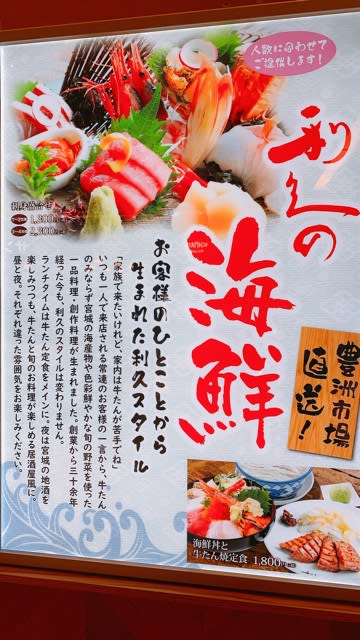 人数に合わせて
ご用意します!
利久の
海鮮
豊洲市場
直送!
刺身盛合せ
お客様のひとことから
生まれた利久スタイル
「家族で来たいけれど、家内は牛たんが苦手でね」
いつも一人で来店される常連のお客様の一言から、牛たん
のみならず宮城の海産物や色彩鮮やかな旬の野菜を使った
一品料理・創作料理が生まれました。創業から三十余年
経った今も、利久のスタイルは変わりません。
ランチタイムは牛たん定食をメインに。夜は宮城の地酒を
楽しみつつも、牛たんと旬のお料理が楽しめる居酒屋風に。
昼と夜。それぞれ違った雰囲気をお楽しみください。
海鮮丼と
牛たん焼定食 1,800円